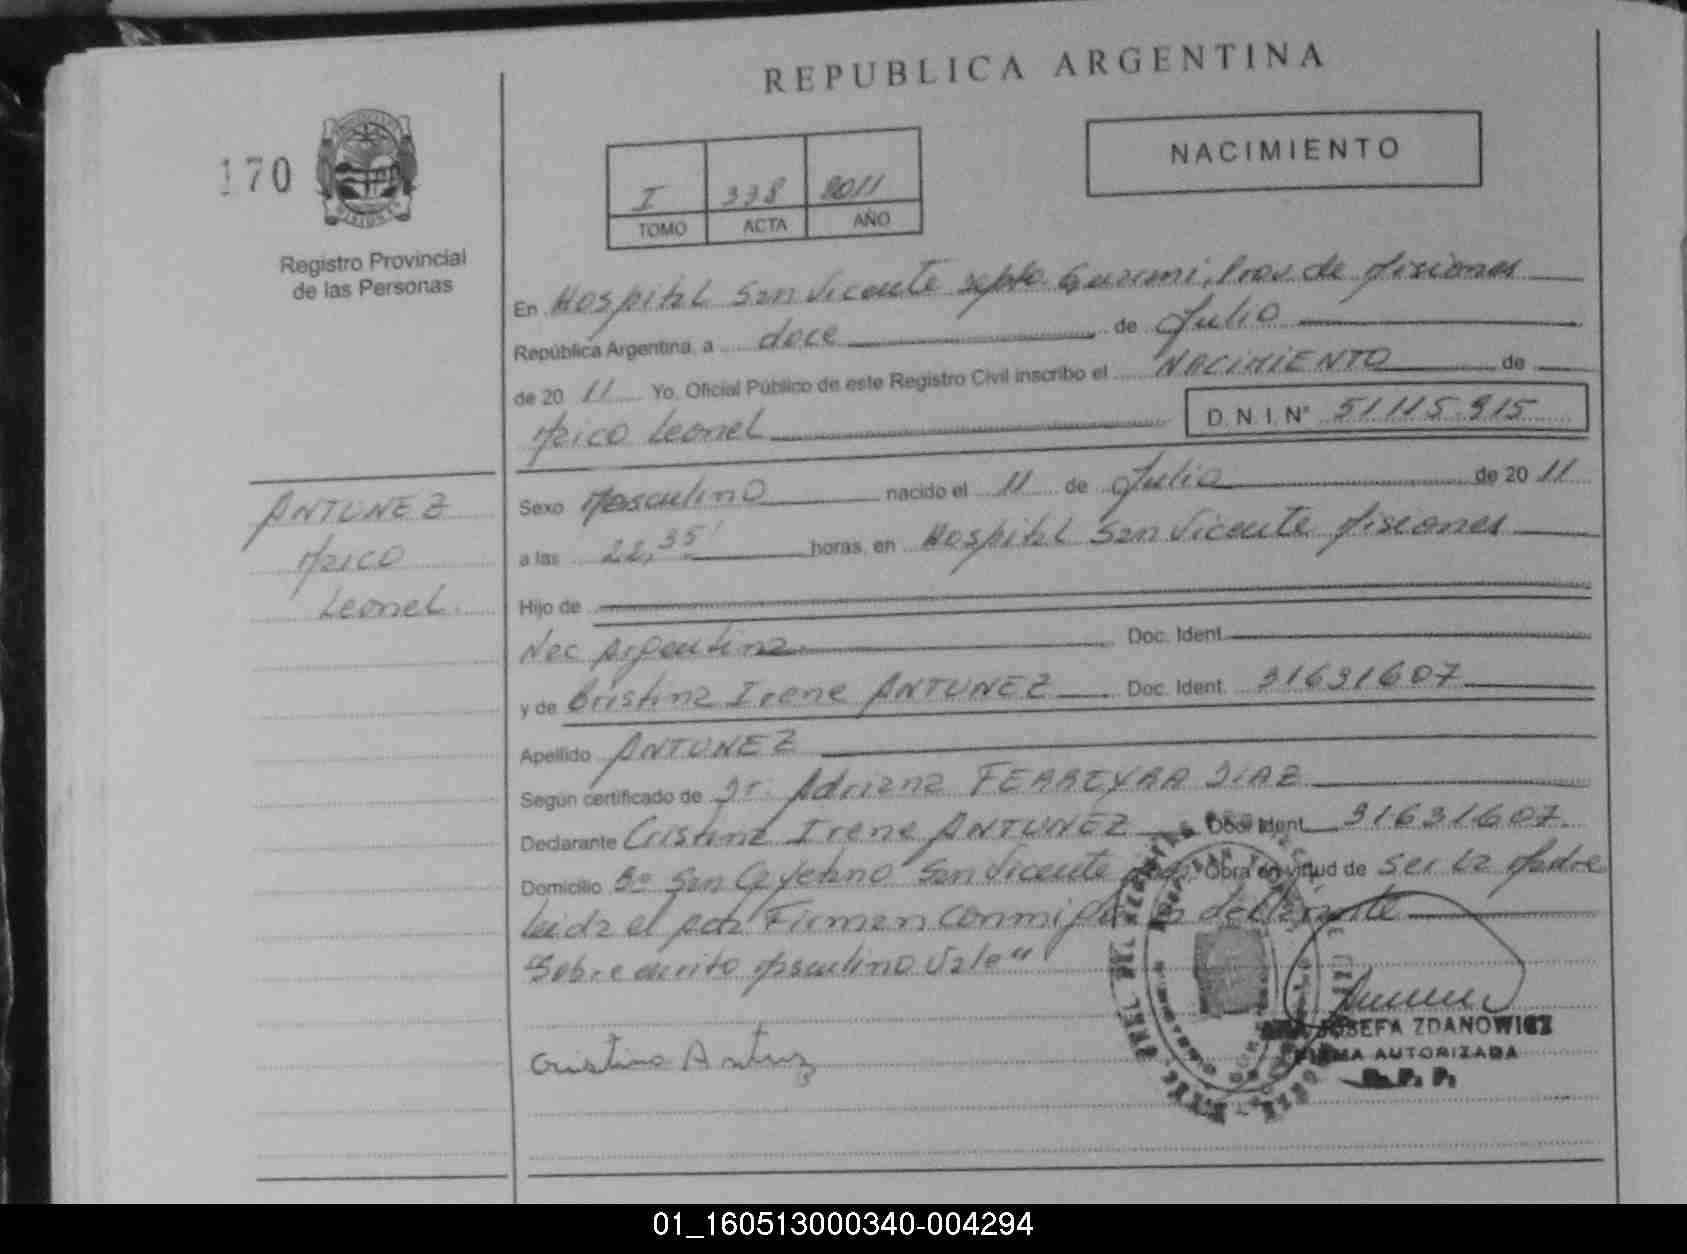 REPUBLICA ARGENTINA
170
NACIMIENTO
I 338 2011
TOMO ACTA AÑO
Registro Provincial
de las Personas
En Hospital San Vicente Depto. Guarani, Prov. de Misiones
República Argentina, a doce de Julio
de 20 11 Yo, Oficial Público de este Registro Civil inscribo el NACIMIENTO de
Leonel D. N. I. N° 51115.915
ANTUNEZ
Leonel
Sexo Masculino nacido el 11 de Julio de 20 11
a las 22,35' horas, en Hospital San Vicente Misiones
Hijo de
Nac Argentina Doc. Ident.
y de Cristina Irene ANTUNEZ Doc. Ident. 31631607
Apellido ANTUNEZ
Según certificado de Dr. Adriana FERREYRA DIAZ
Declarante Cristina Irene ANTUNEZ Doc. Ident. 31631607.
Domicilio B° San Cayetano San Vicente Obra en virtud de ser la Madre
Leida el Firman conmigo declarante
"Sobre escrito Masculino Vale"
Cristina
JOSEFA ZDANOWICZ
FIRMA AUTORIZADA
R. P. P.
01_160513000340-004294